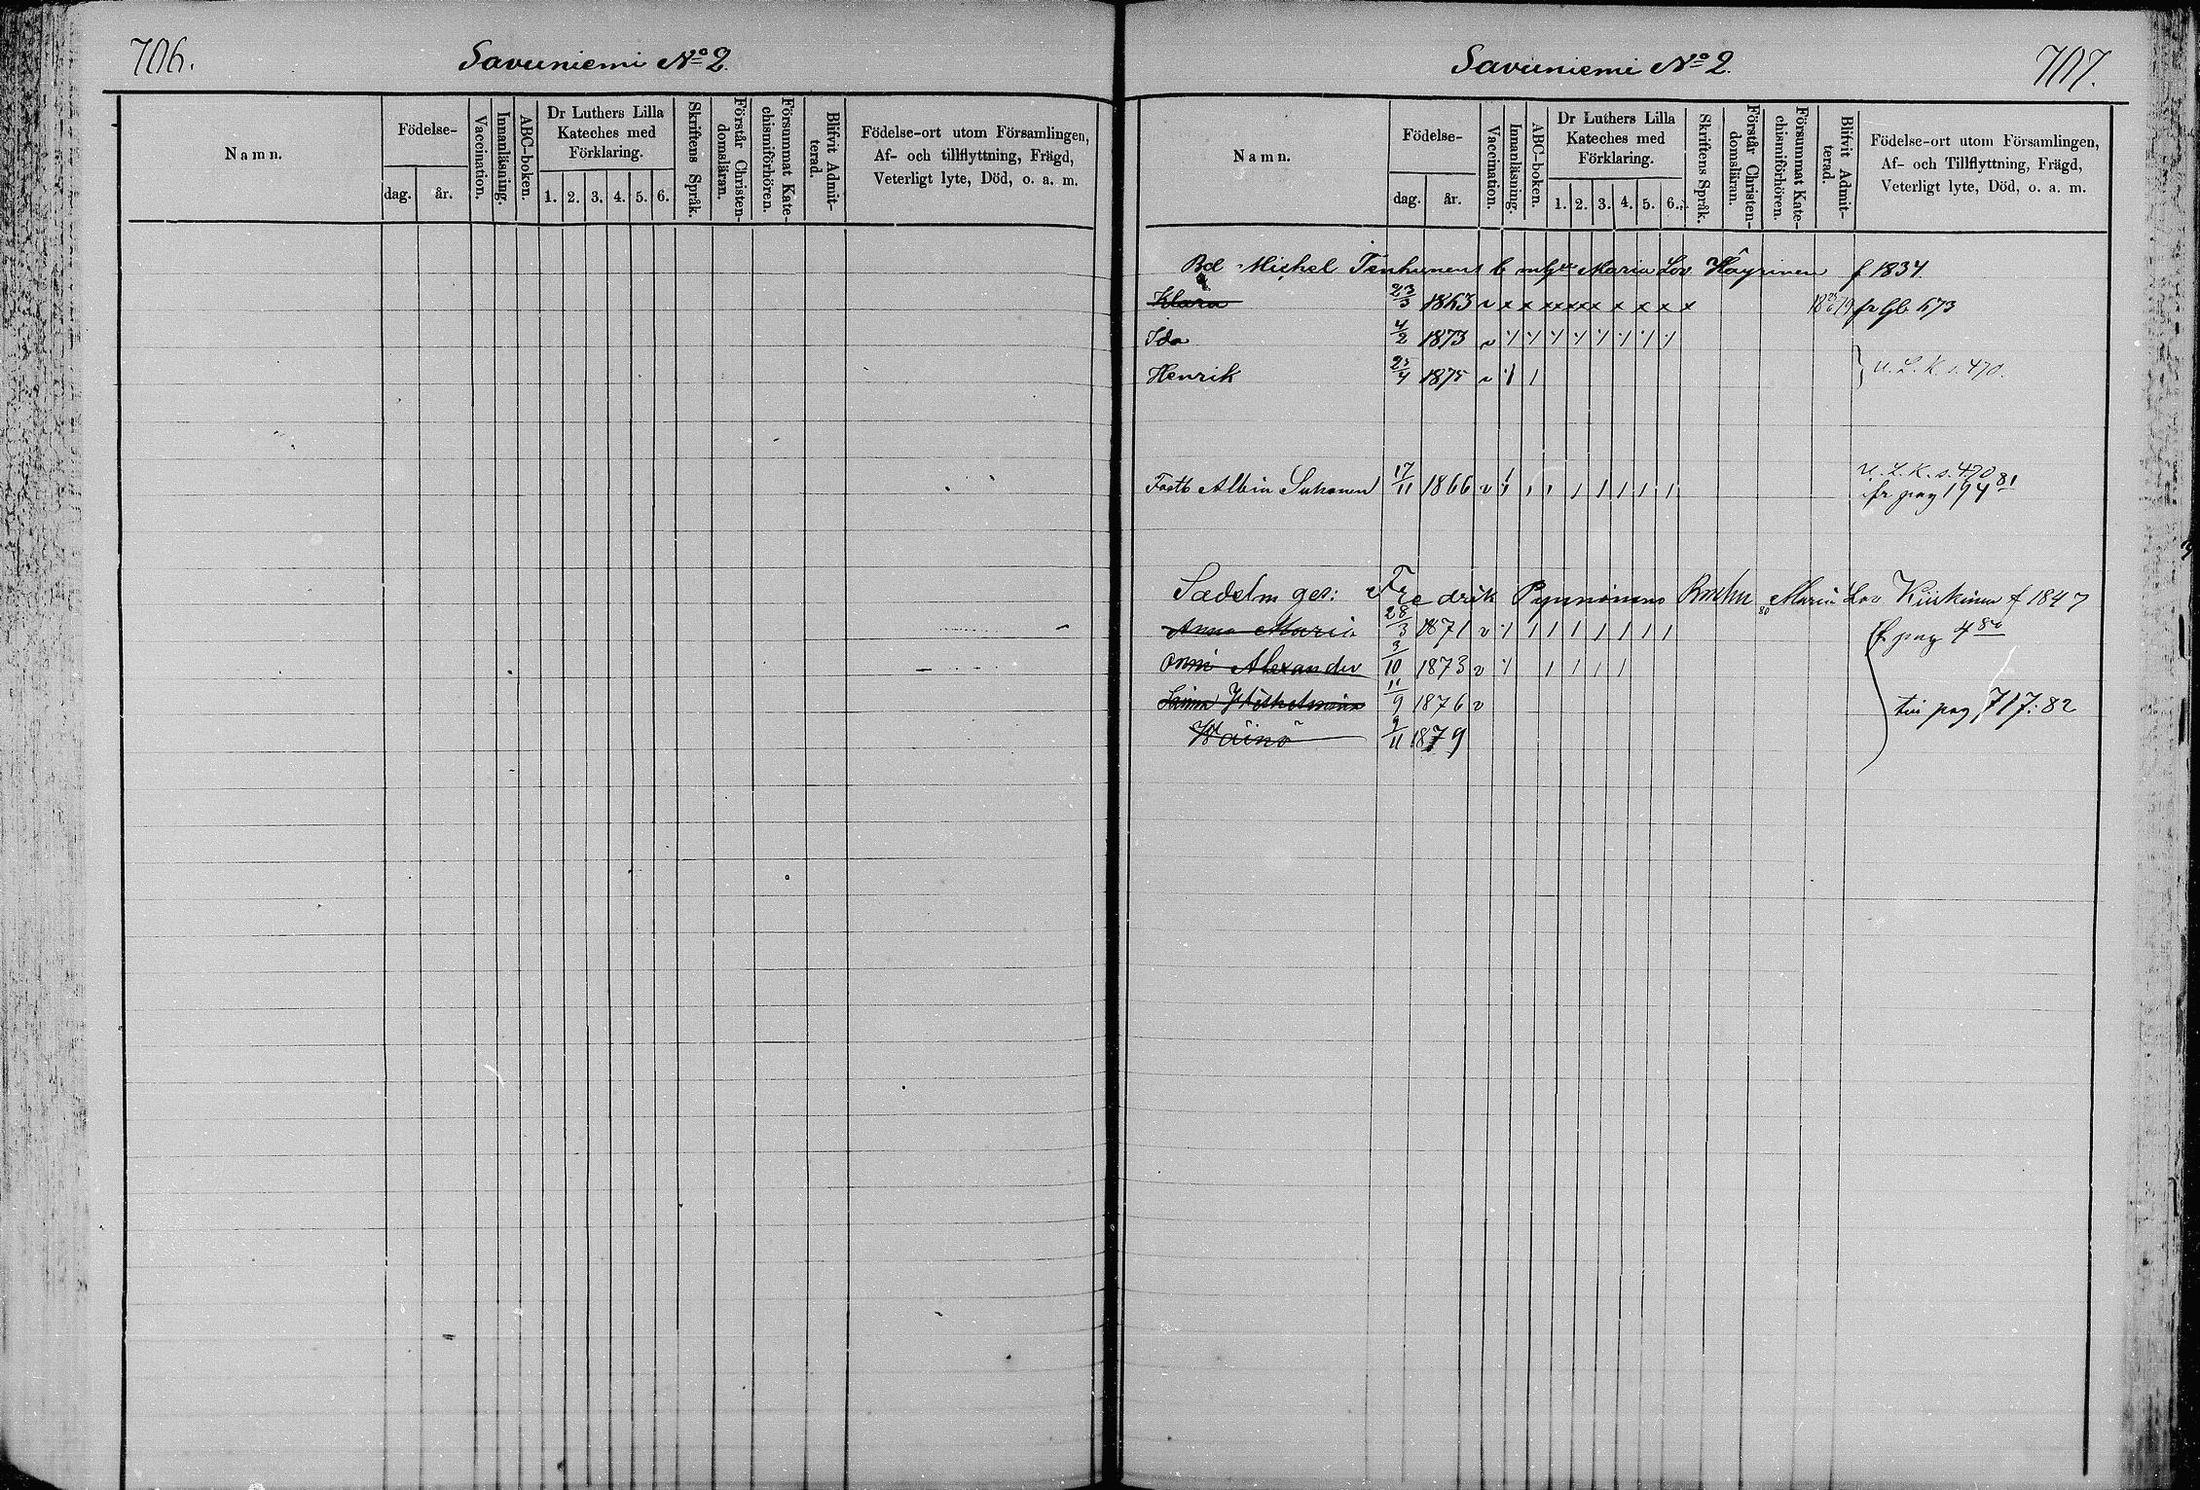 706.
Savuniemi No 2.
Namn.
Födelse-
dag.
år.
Vaccination.
Innanläsning.
ABC-boken.
Dr Luthers Lilla
Kateches med
Förklaring.
1. 2. 3. 4. 5. 6.
Skriftens Språk.
Förstår Christen-
domsläran.
Försummat Kate-
chismiförhören.
Blifvit Admit-
terad.
Födelse-ort utom Församlingen,
Af- och tillflyttning, Frägd,
Veterligt lyte, Död, o. a. m.
Savuniemi No 2.
707.
Namn.
Födelse-
dag.
år.
Vaccination.
Innanläsning.
ABC-boken.
Dr Luthers Lilla
Kateches med
Förklaring.
1. 2. 3. 4. 5. 6.
Skriftens Språk.
Förstår Christen-
domsläran.
Försummat Kate-
chismiförhören.
Blifvit Admit-
terad.
Födelse-ort utom Församlingen,
Af- och Tillflyttning, Frägd,
Veterligt lyte, Död, o. a. m.
Michel Tenhunens b Maria Lov Häyrinen f 1834
Klara 23/3 1863 v x x x x x x x x x x
Ida 4/2 1873 v
Henrik 1875 v
u. L. K. s. 470.
Albin Suhonen 17/11 1866 v
u. L. K. s. 470
fr pag 194 81
Fredrik Pynnönens Maria Lov Kiiskinen f 1847
Anna Maria 28/3 1871 v
fr pag 4 80
Onni Alexander 3/10 1873 v
Wilhelmina 11/9 1876 v
till pag 717: 82
Wäinö 9/11 1879